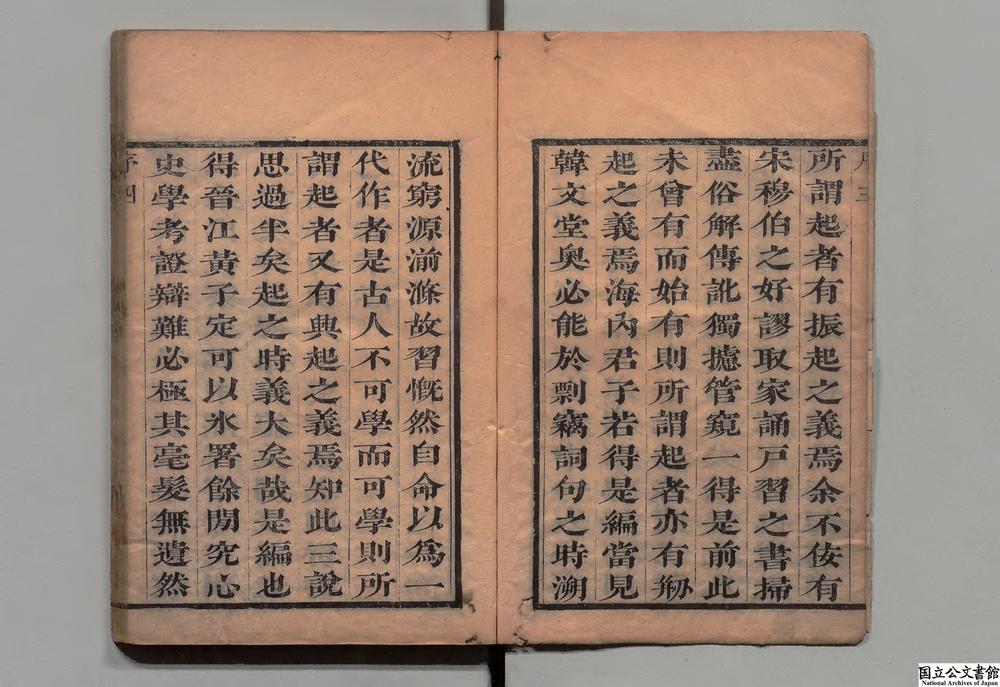 所謂起者有振起之義焉余不佞有
宋穆伯之好謬取家誦戸習之書掃
盡俗解傳訛獨攄管窺一得是前此
未曾有而始有則所謂起者亦有刱
起之義焉海內君子若得是編當見
韓文堂奥必能於剽竊詞句之時溯
流窮源湔滌故習慨然自命以爲一
代作者是古人不可學而可學則所
謂起者又有興起之義焉知此三說
思過半矣起之時義大矣哉是編也
得晉江黃子定可以氷署餘閒究心
史學考證辯難必極其毫髮無遺然
序四
国立公文書館
National Archives of Japan